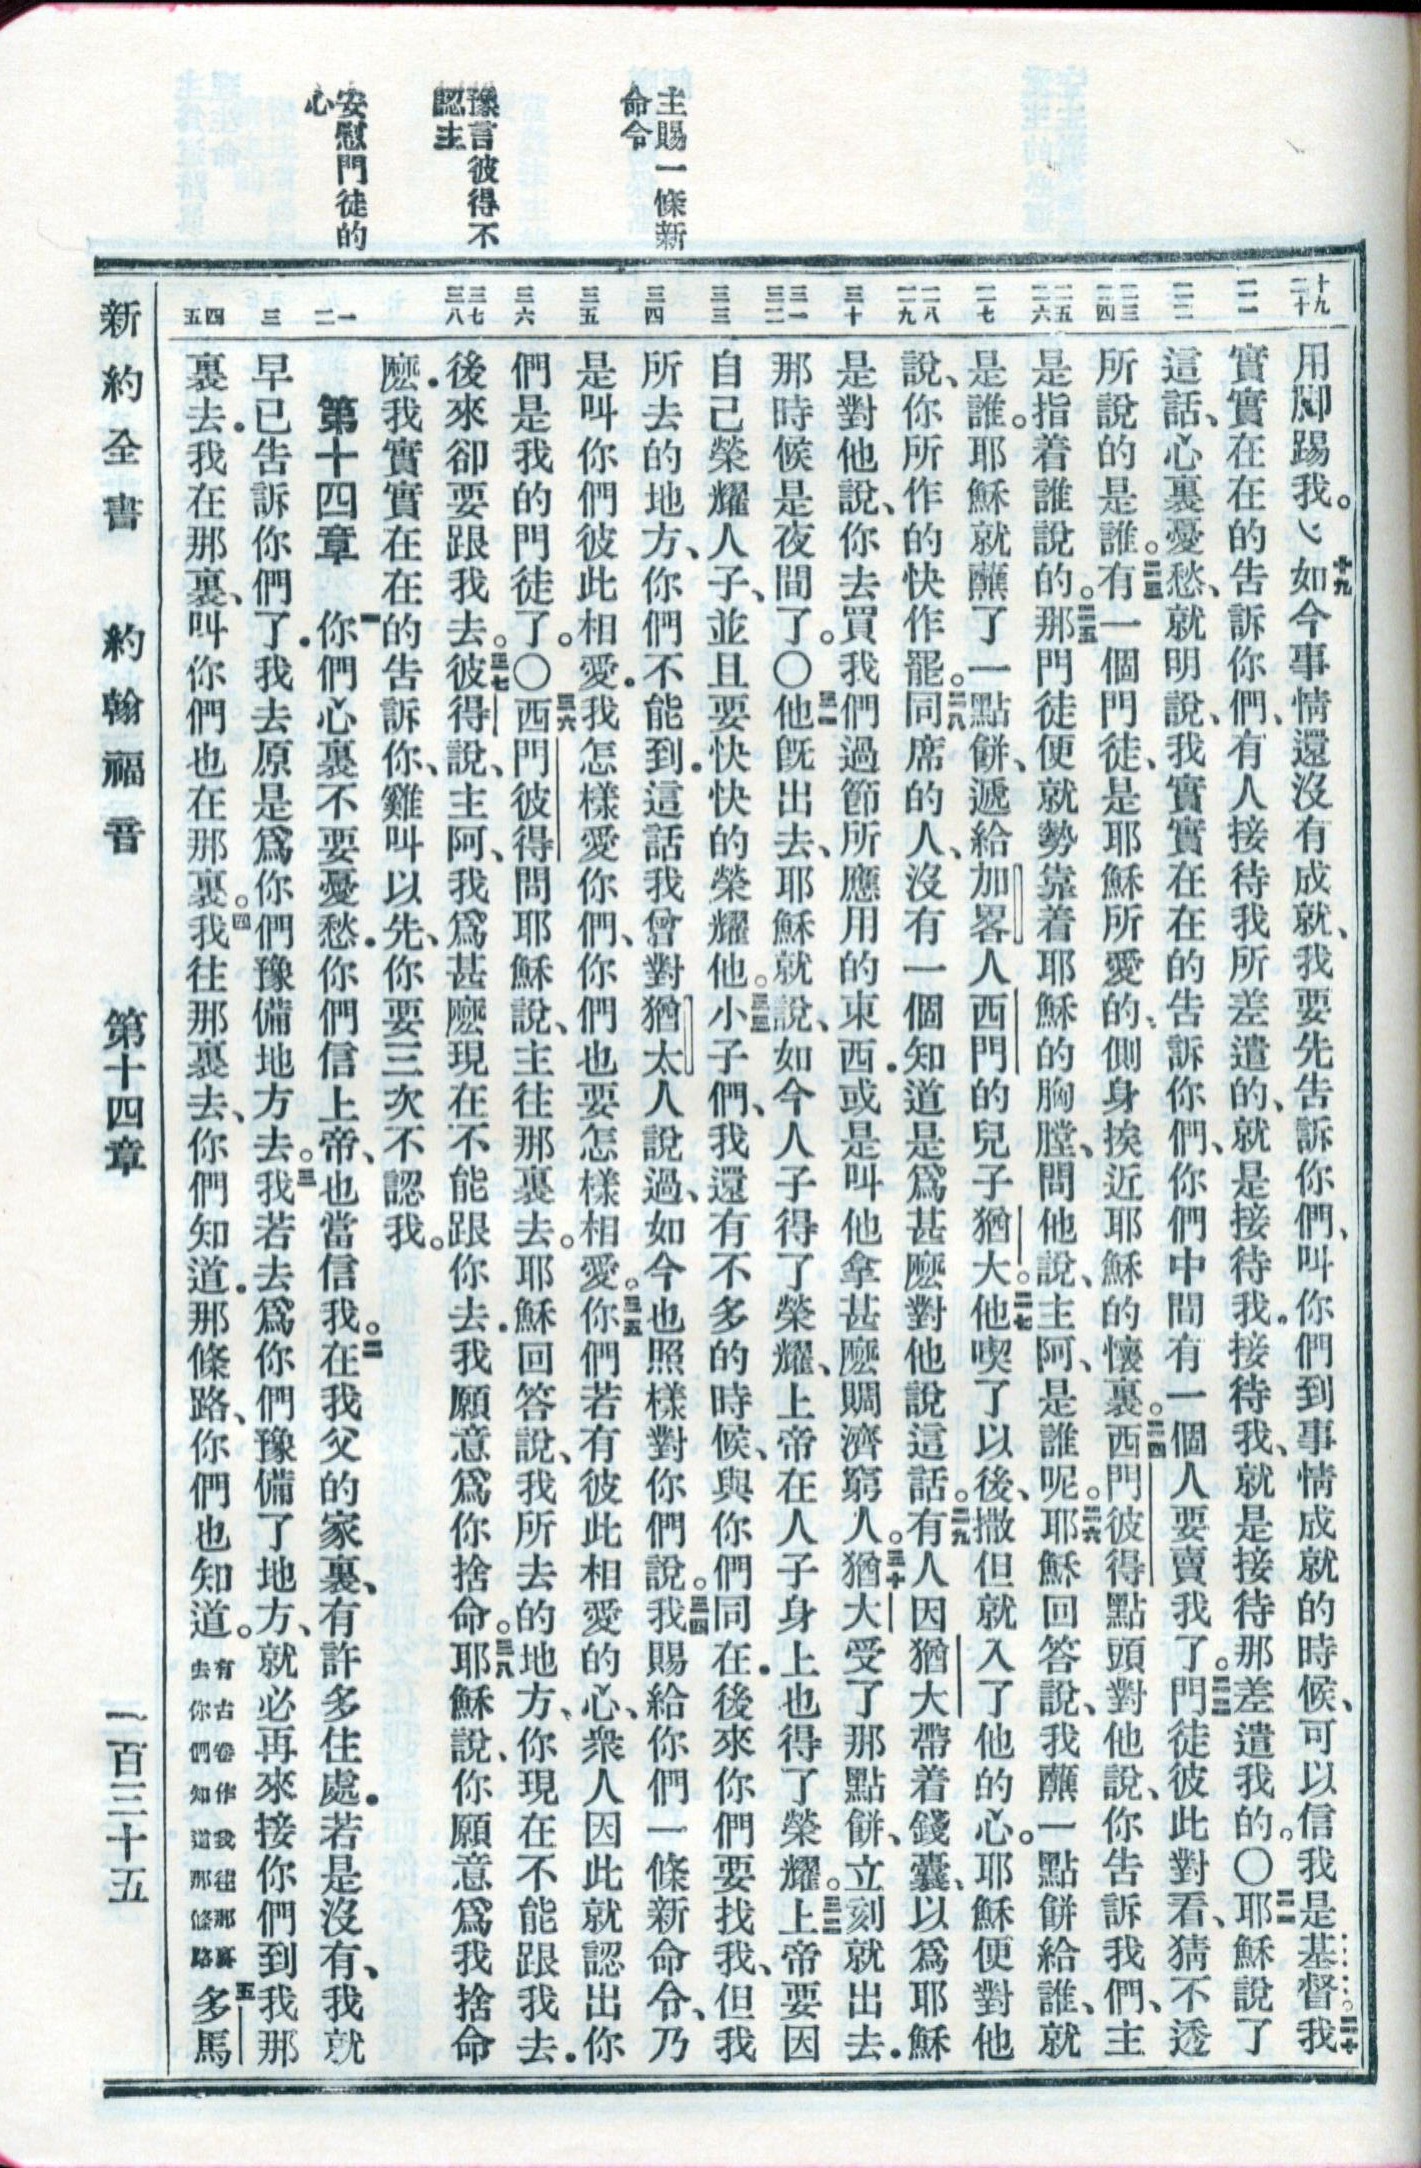 主賜一條新
命令
豫言彼得不
認主
安慰門徒的
心
十九
二十
二一
二二
二三
二四
二五
二六
二七
二八
二九
三十
三一
三二
三三
三四
三五
三六
三七
三八
一
二
三
四
五
用脚踢我。十九如今事情還沒有成就、我要先告訴你們、叫你們到事情成就的時候、可以信我是基督。二十我
實實在在的告訴你們、有人接待我所差遣的、就是接待我。接待我、就是接待那差遣我的。〇二一耶穌說了
這話、心裏憂愁、就明說、我實實在在的告訴你們、你們中間有一個人要賣我了。二二門徒彼此對看、猜不透
所說的是誰。二三有一個門徒、是耶穌所愛的、側身挨近耶穌的懷裏。二四西門彼得點頭對他說、你告訴我們、主
是指着誰說的。二五那門徒便就勢靠着耶穌的胸膛、問他說、主阿、是誰呢。二六耶穌回答說、我蘸一點餅給誰、就
是誰。耶穌就蘸了一點餅、遞給加畧人西門的兒子猶大。二七他喫了以後、撒但就入了他的心。耶穌便對他
說、你所作的快作罷。二八同席的人、沒有一個知道是爲甚麼對他說這話。二九有人因猶大帶着錢囊、以爲耶穌
是對他說、你去買我們過節所應用的東西．或是叫他拿甚麼賙濟窮人。三十猶大受了那點餅、立刻就出去．
那時候是夜間了。〇三一他旣出去、耶穌就說、如今人子得了榮耀、上帝在人子身上也得了榮耀。三二上帝要因
自己榮耀人子、並且要快快的榮耀他。三三小子們、我還有不多的時候、與你們同在．後來你們要找我、但我
所去的地方、你們不能到．這話我曾對猶太人說過、如今也照樣對你們說。三四我賜給你們一條新命令、乃
是叫你們彼此相愛．我怎樣愛你們、你們也要怎樣相愛。三五你們若有彼此相愛的心、衆人因此就認出你
們是我的門徒了。〇三六西門彼得問耶穌說、主往那裏去。耶穌回答說、我所去的地方、你現在不能跟我去．
後來卻要跟我去。三七彼得說、主阿、我爲甚麼現在不能跟你去．我願意爲你捨命。三八耶穌說、你願意爲我捨命
麼．我實實在在的告訴你、雞叫以先、你要三次不認我。
第十四章　一你們心裏不要憂愁．你們信上帝、也當信我。二在我父的家裏、有許多住處．若是沒有、我就
早已告訴你們了．我去原是爲你們豫備地方去。三我若去爲你們豫備了地方、就必再來接你們到我那
裏去．我在那裏、叫你們也在那裏。四我往那裏去、你們知道．那條路、你們也知道。有古卷作我往那裏去你們知道那條路五多馬
新約全書　約翰福音　第十四章　一百三十五